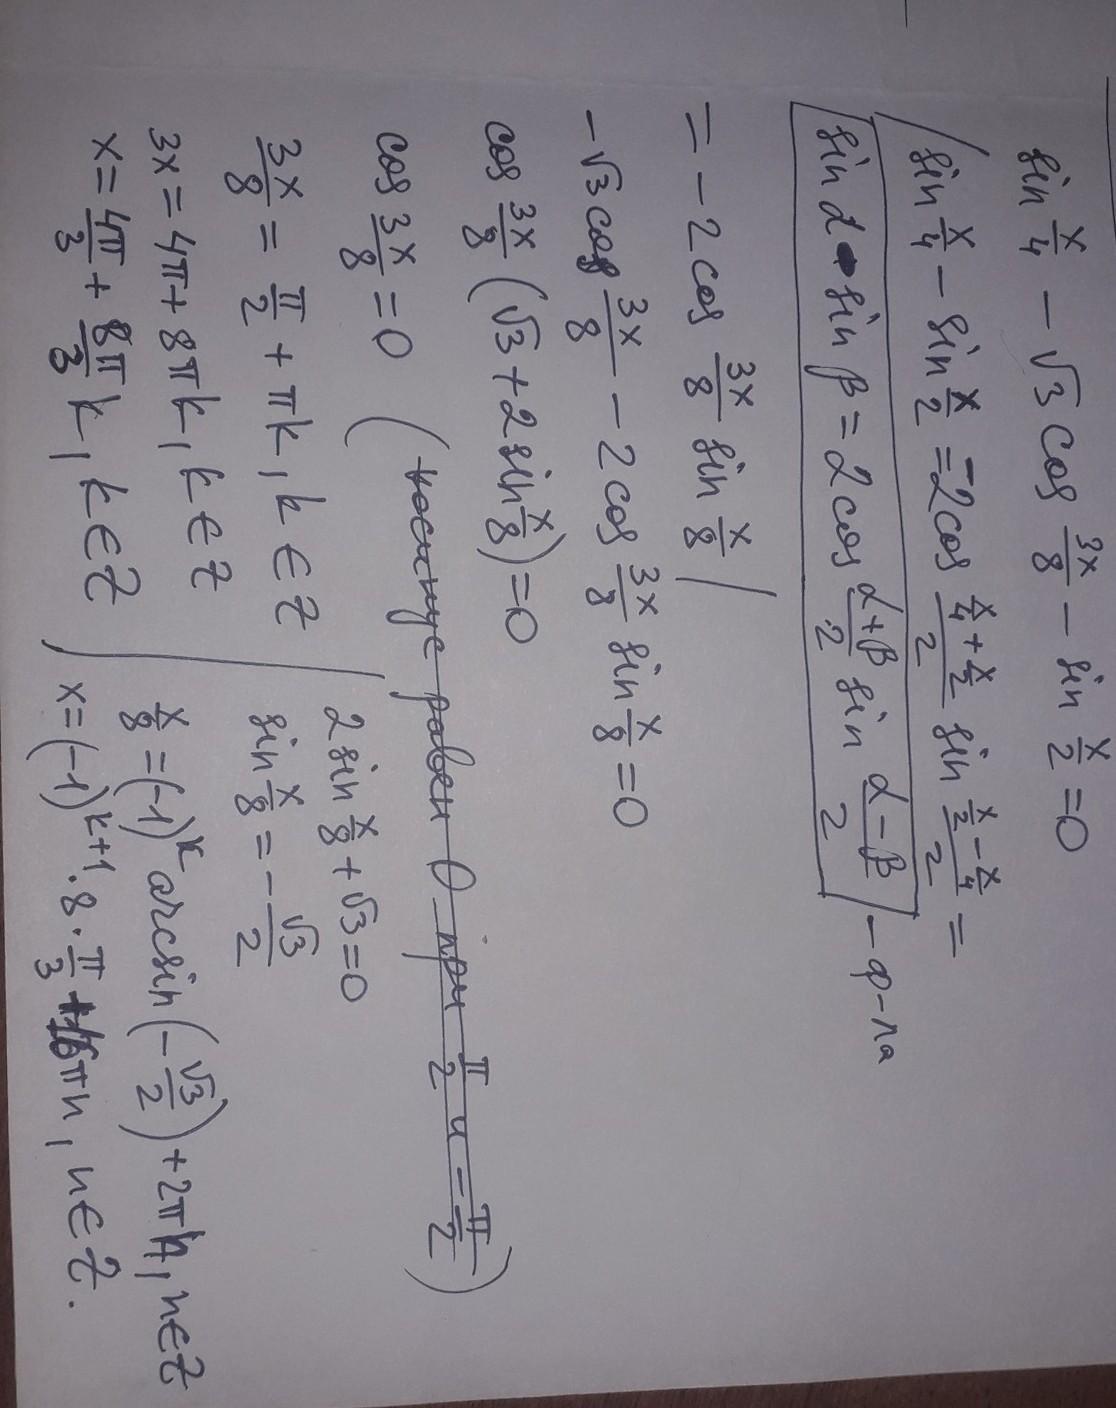 sin x/4 - √3 cos 3x/8 - sin x/2 = 0
/ sin x/4 - sin x/2 = -2cos (x/4 + x/2)/2 sin (x/2 - x/4)/2 =
sin α - sin β = 2cos (α+β)/2 sin (α-β)/2 - ф-ла
= -2cos 3x/8 sin x/8 /
-√3 cos 3x/8 - 2cos 3x/8 sin x/8 = 0
cos 3x/8 (√3 + 2sin x/8) = 0
cos 3x/8 = 0 (косинус равен 0 при π/2 и -π/2)
3x/8 = π/2 + πk, k ∈ Z
3x = 4π + 8πk, k ∈ Z
x = 4π/3 + 8π/3 k, k ∈ Z
2sin x/8 + √3 = 0
sin x/8 = -√3/2
x/8 = (-1)^k arcsin(-√3/2) + 2πn, n ∈ Z
x = (-1)^k+1 · 8 · π/3 + 16πn, n ∈ Z.